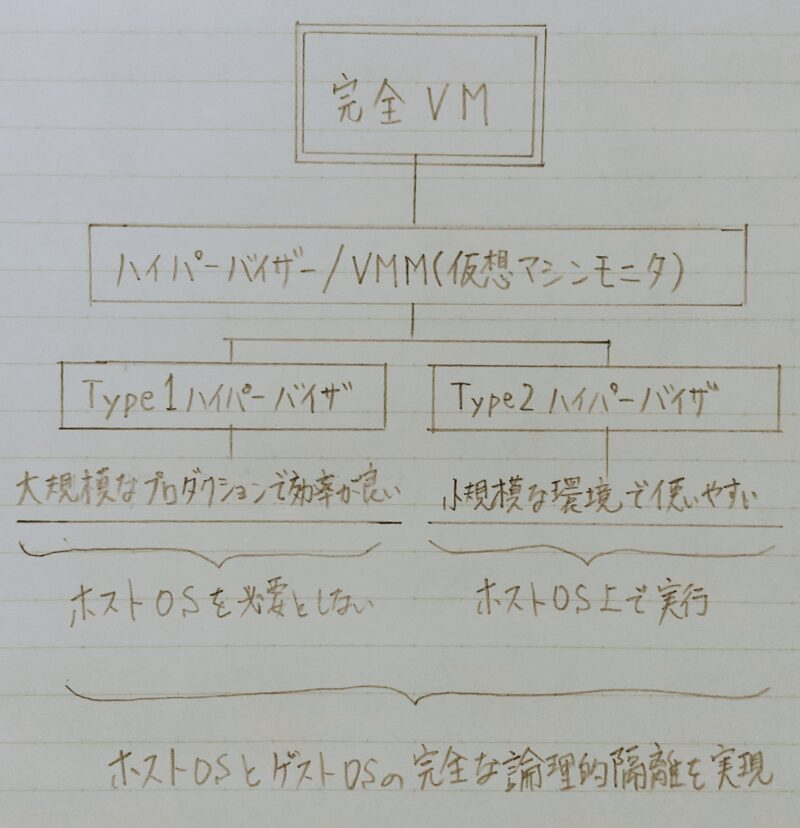 完全VM
ハイパーバイザー/VMM(仮想マシンモニタ)
Type1ハイパーバイザ
Type2ハイパーバイザ
大規模なプロダクションで効率が良い
小規模な環境で使いやすい
ホストOSを必要としない
ホストOS上で実行
ホストOSとゲストOSの完全な論理的隔離を実現